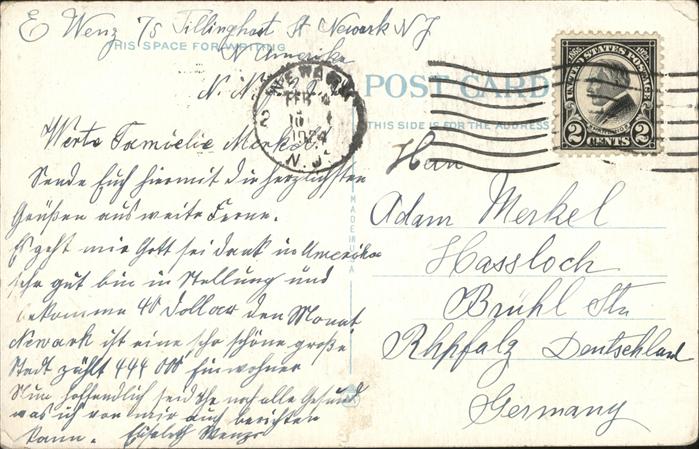 E Wenz 75 Tillinghast St Newark NJ
THIS SPACE FOR WRITING
N Amerika
N. N.
NEWARK
FEB 4
2
1924
N.J.
UNITED STATES POSTAGE
1865 1923
HARDING
2 CENTS 2
POST CARD
THIS SIDE IS FOR THE ADDRESS
MADE IN U.S.A.
Werte Familie Merkel.
Sende Euch hiermit die herzlichsten
Grüßen aus weiter Ferne.
Es geht mir Gott sei dank in Amerika
sehr gut bin in Stellung und
bekomme 40 Dollar den Monat
Newark ist eine sehr schöne große
Stadt zählt 444 000 Einwohner
Nun hoffendlich seid Ihr noch alle Gesund
was ich von mir auch berichten
kann. Elisabeth
Adam Merkel
Hassloch
Brühl Str
Rhpfalz Deutschland
Germany